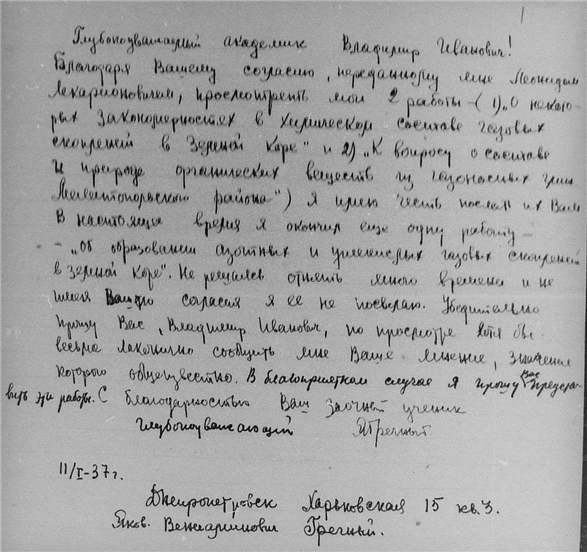 Глубокоуважаемый академик Владимир Иванович!
Благодаря Вашему согласию, переданному мне Леонидом
Лекарионовичем, просмотреть мои 2 работы – ( 1) „О некото-
рых закономерностях в химическом составе газовых
скоплений в Земной Коре" и 2) „К вопросу о составе
и природе органических веществ из газоносных глин
Мелитопольского района") я имею честь послать их Вам
В настоящее время я окончил еще одну работу –
– „Об образовании азотных и углекислых газовых скоплений
в земной коре". Не решаясь отнять много времени и не
имея Вашего согласия я ее не посылаю. Убедительно
прошу Вас, Владимир Иванович, по просмотре хотя бы
весьма лаконично сообщить мне Ваше мнение, значение
которого общеизвестно. В благоприятном случае я прошу Вас представ-
ить эти работы. С благодарностью Ваш заочный ученик
глубокоуважающий ЯГречный
11/I-37г.
Днепропетровск Харьковская 15 кв. 3.
Яков. Вениаминович Гречный.